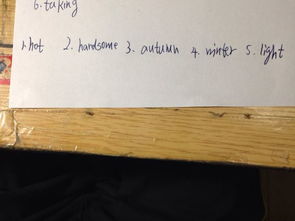 6. taking
1. hot 2. handsome 3. autumn 4. winter 5. light